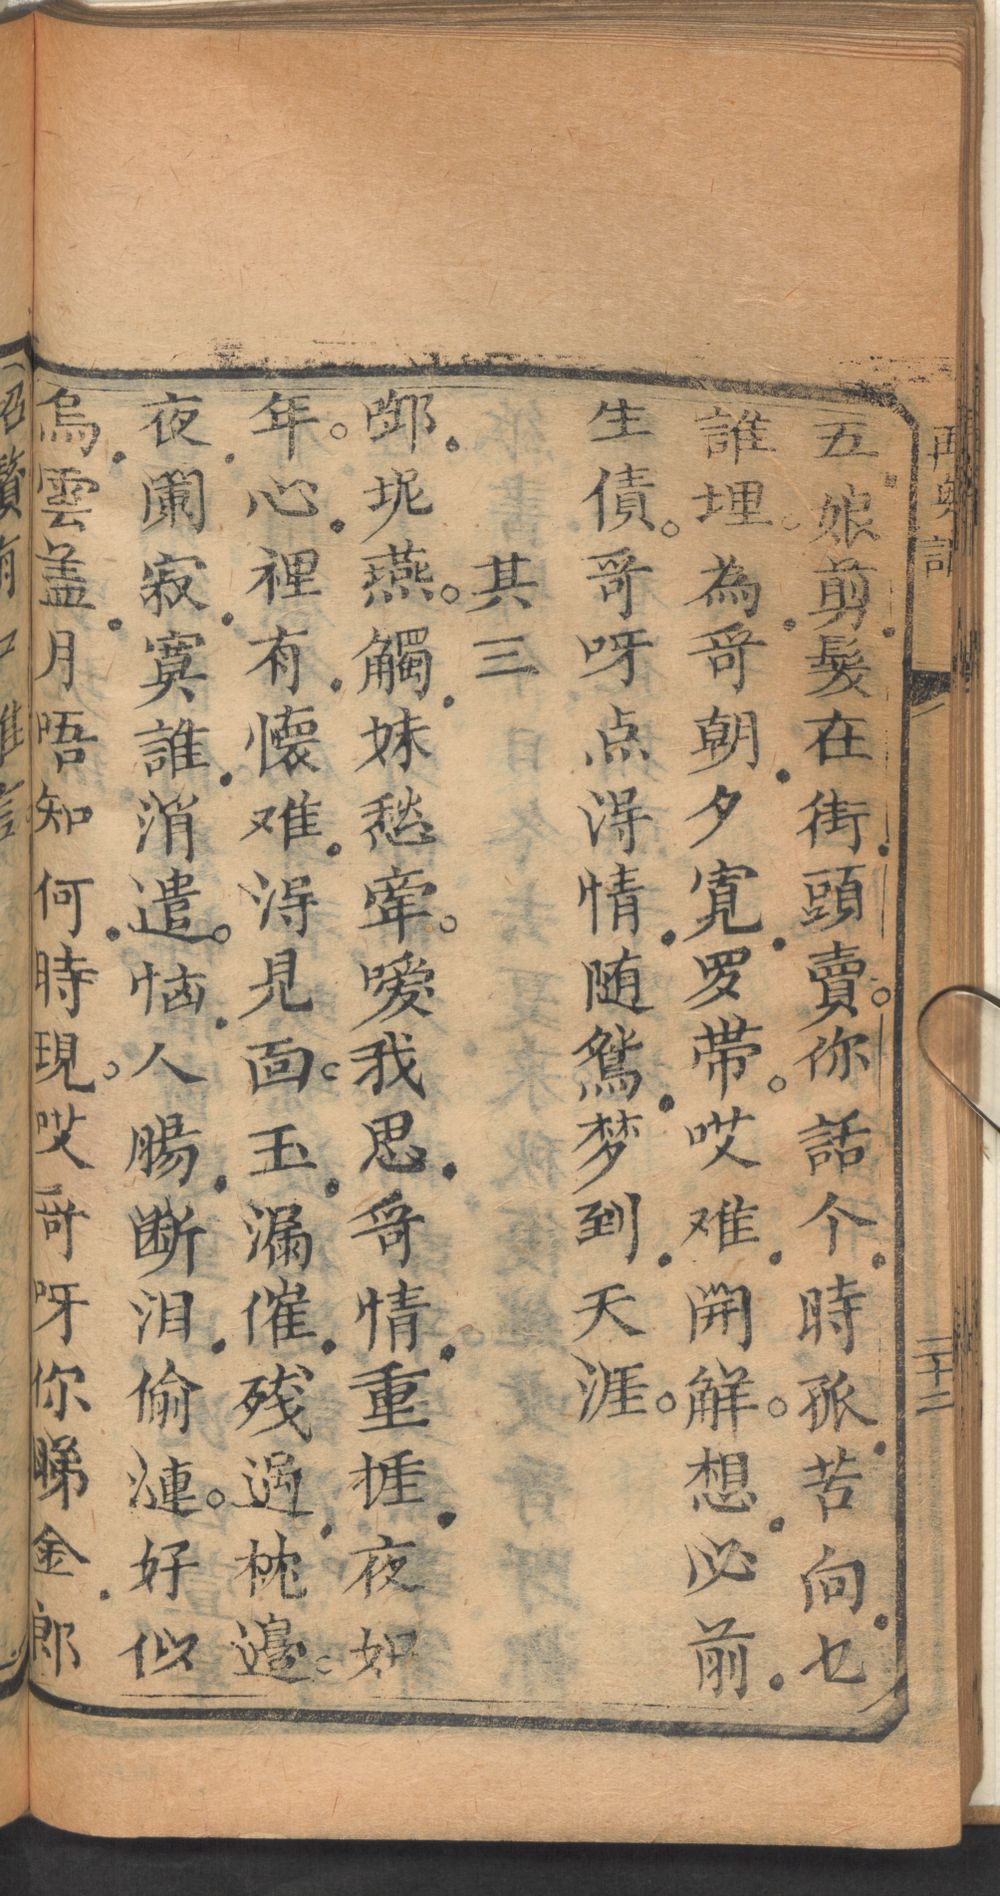 五娘剪髮在街頭賣。你話个時孤苦向乜
誰埋。為哥朝夕寛罗带。哎难開解。想必前
生債。哥呀点淂情随鴛梦到天涯。
其三
啣坭燕。觸妹愁牽。嗳我思哥情重捱夜如
年。心裡有懷难淂見面。玉漏催残過枕邉。
夜闌寂寞誰消遣。恼人腸断泪偷漣。好似
烏雲盖月唔知何時現。哎哥呀你睇金郎
二十二